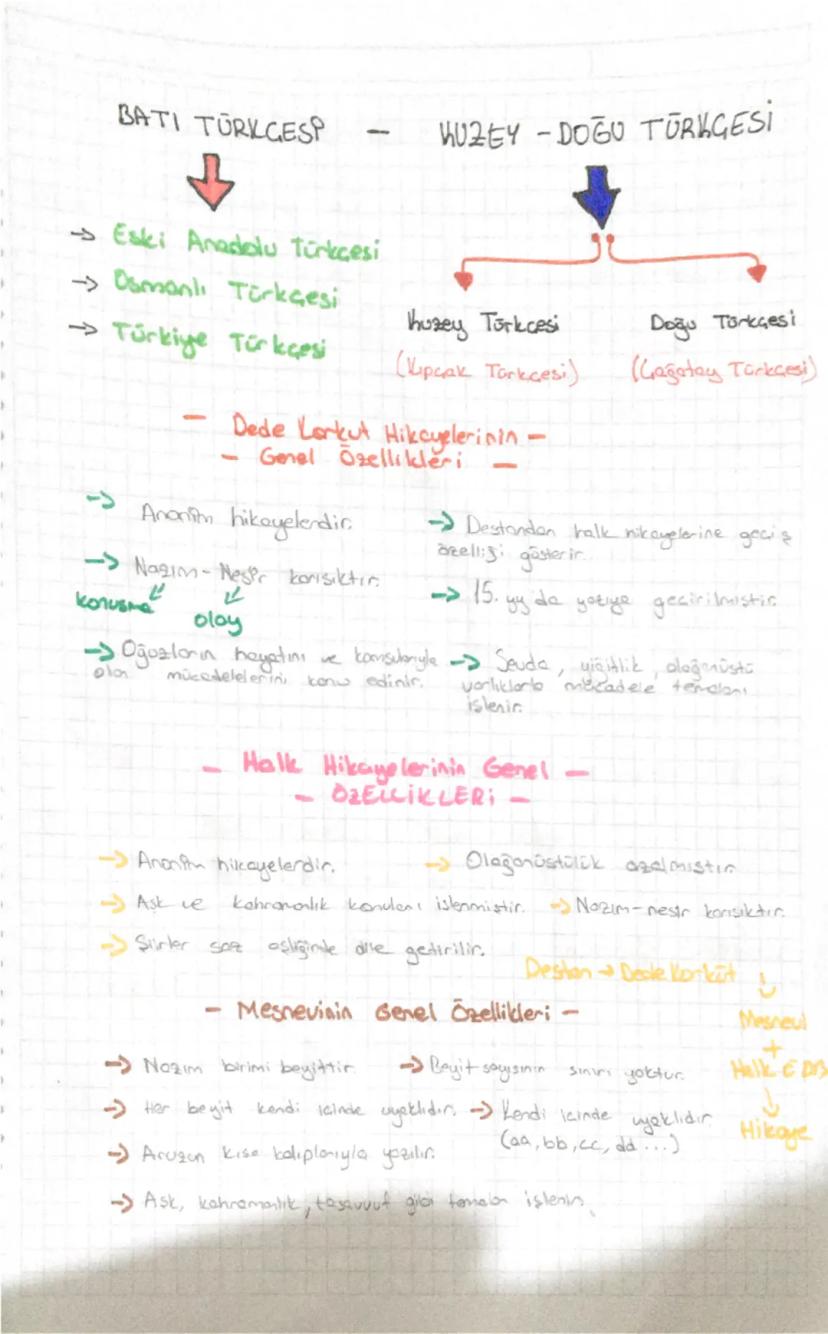 BATI TÜRKÇESİ - KUZEY - DOĞU TÜRKÇESİ
→ Eski Anadolu Türkçesi
→ Osmanlı Türkçesi
→ Türkiye Türkçesi
Kuzey Türkçesi
(Kıpçak Türkçesi)
Doğu Türkçesi
(Çağatay Türkçesi)
- Dede Korkut Hikayelerinin -
- Genel Özellikleri -
→ Anonim hikayelerdir.
→ Nazım-Nesir karışıktır.
konuşma
olay
→ Oğuzların hayatını ve komşularıyla
olan mücadelelerini konu edinir.
→ Destandan halk hikayelerine geçiş
özelliği gösterir.
→ 15. yy'da yazıya geçirilmiştir.
→ Sevda, yiğitlik, olağanüstü
varlıklarla mücadele temaları
işlenir.
- Halk Hikayelerinin Genel -
- ÖZELLİKLERİ -
→ Anonim hikayelerdir.
→ Olağanüstülük azalmıştır.
→ Aşk ve kahramanlık konuları işlenmiştir.
→ Nazım-nesir karışıktır.
→ Şiirler saz eşliğinde dile getirilir.
Destan → Dede Korkut
↓
Mesnevi
+
Halk EDB
↓
Hikaye
- Mesnevinin Genel Özellikleri -
→ Nazım birimi beyittir.
→ Beyit sayısının sınırı yoktur.
→ Her beyit kendi içinde uyaklıdır.
→ Kendi içinde uyaklıdır
(aa, bb, cc, dd ...)
→ Aruzun kısa kalıplarıyla yazılır.
→ Aşk, kahramanlık, tasavvuf gibi temalar işlenir.